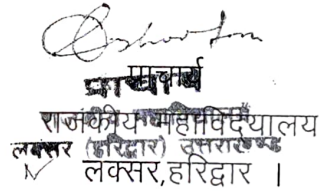 प्राचार्य
राजकीय महाविद्यालय
लक्सर (हरिद्वार) उत्तराखण्ड
लक्सर,हरिद्वार ।